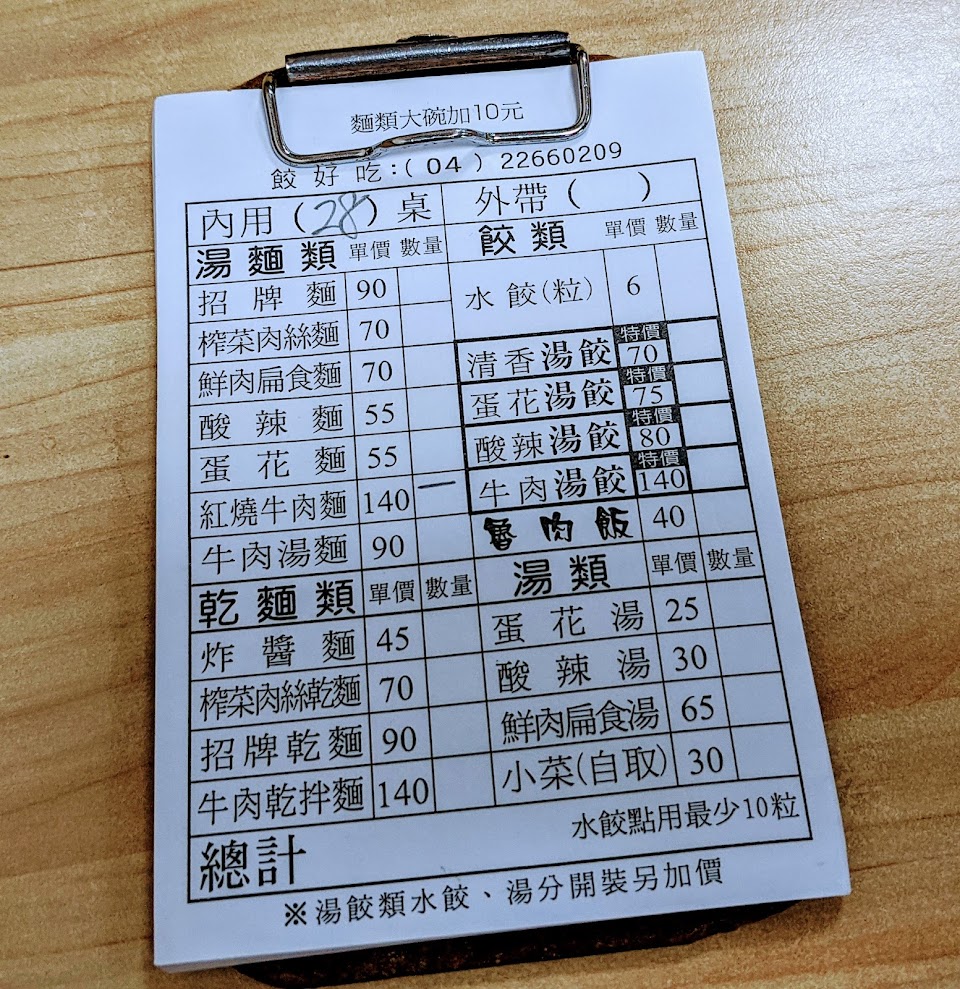 麵類大碗加10元
餃好吃:(04)22660209
內用(28)桌 外帶( )
湯麵類 單價 數量
招牌麵 90
榨菜肉絲麵 70
鮮肉扁食麵 70
酸辣麵 55
蛋花麵 55
紅燒牛肉麵 140 一
牛肉湯麵 90
乾麵類 單價 數量
炸醬麵 45
榨菜肉絲乾麵 70
招牌乾麵 90
牛肉乾拌麵 140
餃類 單價 數量
水餃(粒) 6
清香湯餃 特價 70
蛋花湯餃 特價 75
酸辣湯餃 特價 80
牛肉湯餃 特價 140
魯肉飯 40
湯類 單價 數量
蛋花湯 25
酸辣湯 30
鮮肉扁食湯 65
小菜(自取) 30
水餃點用最少10粒
總計
※湯餃類水餃、湯分開裝另加價